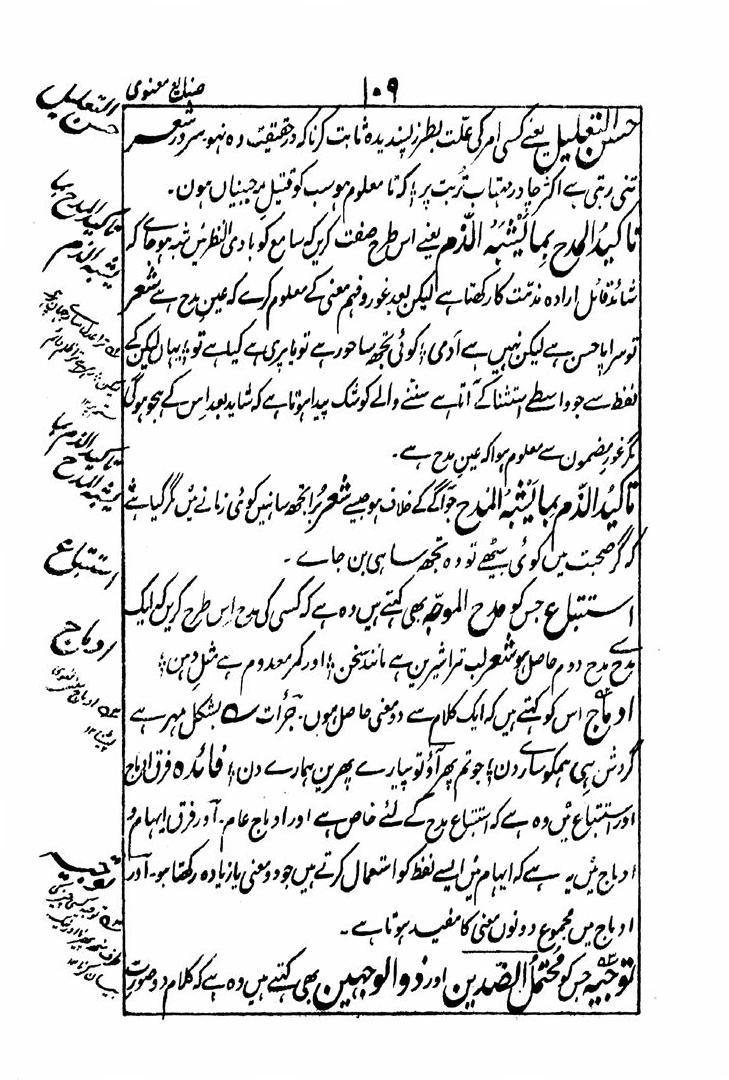 صنایع معنوی
۱۰۹
حسن التعلیل یعنے کسی امر کی علّت بطرز پسندیدہ ثابت کرنا کہ درحقیقت وہ نہو سرور شعر
تنی رہتی ہے اکثر چادر مہتاب تربت پر ؛ کہ تا معلوم ہو سب کو قتیلِ مہ جبیناں ہون۔
تاکیدُ المدح بِما یَشْبَہُ الذّم یعنے اس طرح صفت کریں کہ سامع کو بادی النظر میں شبہ ہو جاے کہ
شائد قائل ارادہ مذمّت کا رکھتا ہے لیکن بعد غور و فہم معنی کے معلوم کرے کہ عین مدح ہے شعر
تو سراپا حسن ہے لیکن نہیں ہے آدمی ؛ کوئی تجھ سا حور ہے تو یا پری ہے کیا ہے تو ؛ یہاں لیکن کے
لفظ سے جو واسطے استثنا کے آتا ہے سننے والے کو شک پیدا ہوتا ہے کہ شاید بعد اس کے ہجو ہوگی
مگر غور مضمون سے معلوم ہوا کہ عین مدح ہے۔
تاکیدُ الذّم بِما یَشْبَہُ المَدح جو آگے کے خلاف ہو جیسے شعر بُرا تجھ سا نہیں کوئی زمانے میں مگر گیا ہے
کہ گر صحبت میں کوئی بیٹھے تو وہ تجھ سا ہی بن جاے ۔
استتباع جس کو مدح الموجّہ بھی کہتے ہیں وہ ہے کہ کسی کی مدح اس طرح کریں کہ ایک
مدح سے مدح دوم حاصل ہو شعر لب ترا شیریں ہے مانند سخن ؛ اور کمر معدوم ہے مثلِ دہن ؛
ادماج اس کو کہتے ہیں کہ ایک کلام سے دو معنی حاصل ہوں۔ جرأت ؎ بشکل مہر ہے
گردش ہی ہمکو سارے دن ؛ جو تم پھر آؤ تو پیارے پھریں ہمارے دن ؛ فائدہ فرق ادماج
اور استتباع میں وہ ہے کہ استتباع مدح کے لئے خاص ہے اور ادماج عام۔ اور فرق ایہام و
ادماج میں یہ ہے کہ ایہام میں ایسے لفظ کو استعمال کرتے ہیں جو دو معنی یا زیادہ رکھتا ہو۔ اور
ادماج میں مجموع دونوں معنی کا مفید ہوتا ہے۔
توجیہ جس کو مُحتملُ الضّدین اور ذو الوجہین بھی کہتے ہیں وہ ہے کہ کلام دو صورت
حسن التعلیل
تاکید المدح بما
یشبہ الذم
تاکید الذم بما
یشبہ المدح
استتباع
ادماج
توجیہ